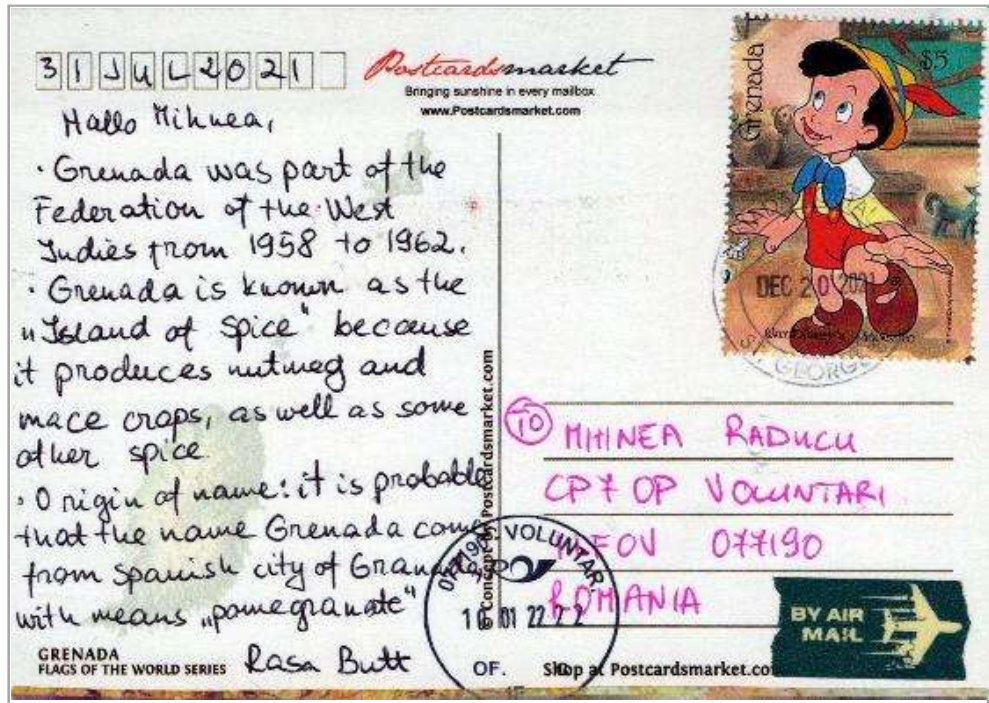 31 JUL 2021
Postcardsmarket
Bringing sunshine in every mailbox
www.Postcardsmarket.com
Hallo Mihnea,
· Grenada was part of the
Federation of the West
Indies from 1958 to 1962.
· Grenada is known as the
„Island of Spice" because
it produces nutmeg and
mace crops, as well as some
other spice
· Origin of name: it is probable
that the name Grenada come
from spanish city of Granada,
with means „pomegranate"
Rasa Butt
GRENADA
FLAGS OF THE WORLD SERIES
Concept by Postcardsmarket.com
Grenada
$5
DEC 20 2021
ST. GEORGE
TO MIHNEA RADUCU
CP7 OP VOLUNTARI
ILFOV 077190
ROMANIA
077190 VOLUNTARI
OF.
BY AIR
MAIL
Shop at Postcardsmarket.co